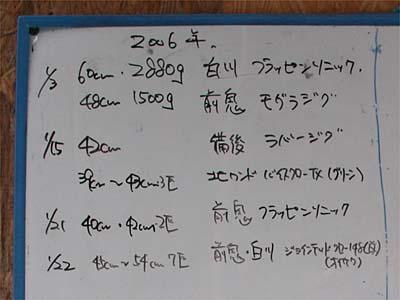 2006年.
1/3 60cm・2880g 白川 フラッペンソニック.
48cm 1500g 前鬼 モグラジグ
1/15 42cm 備後 ラバージグ
39cm～43cm3匹 北ワンド バイスクローTX(グリーン)
1/21 40cm・42cm2匹 前鬼 フラッペンソニック
1/22 45cm～54cm 7匹 前鬼・白川 ジョインテッドクロー148